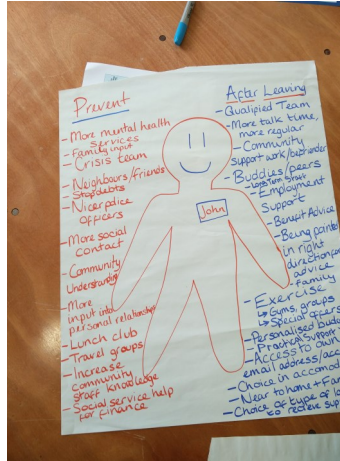 Prevent
- More mental health
services
- Family input
- Crisis team
- Neighbours/friends
- Stop debts
- Nicer police
officers
- More social
contact
- Community
Understanding
- More
input into
personal relationships
- Lunch club
- Travel groups
- Increase
community
staff knowledge
- Social service help
for finance
John
After Leaving
- Qualified Team
- More talk time,
more regular
- Community
support work/befriender
- Buddies/peers
- Long term staff
- Employment
support
- Benefit Advice
- Being pointed
in right
direction for
advice
- Family
- Exercise
↳ Gyms, groups
↳ Special offers
- Personalised
- Practical support
- Access to own
email address
- Choice in
- Near to home +
- Choice of type of
to recieve